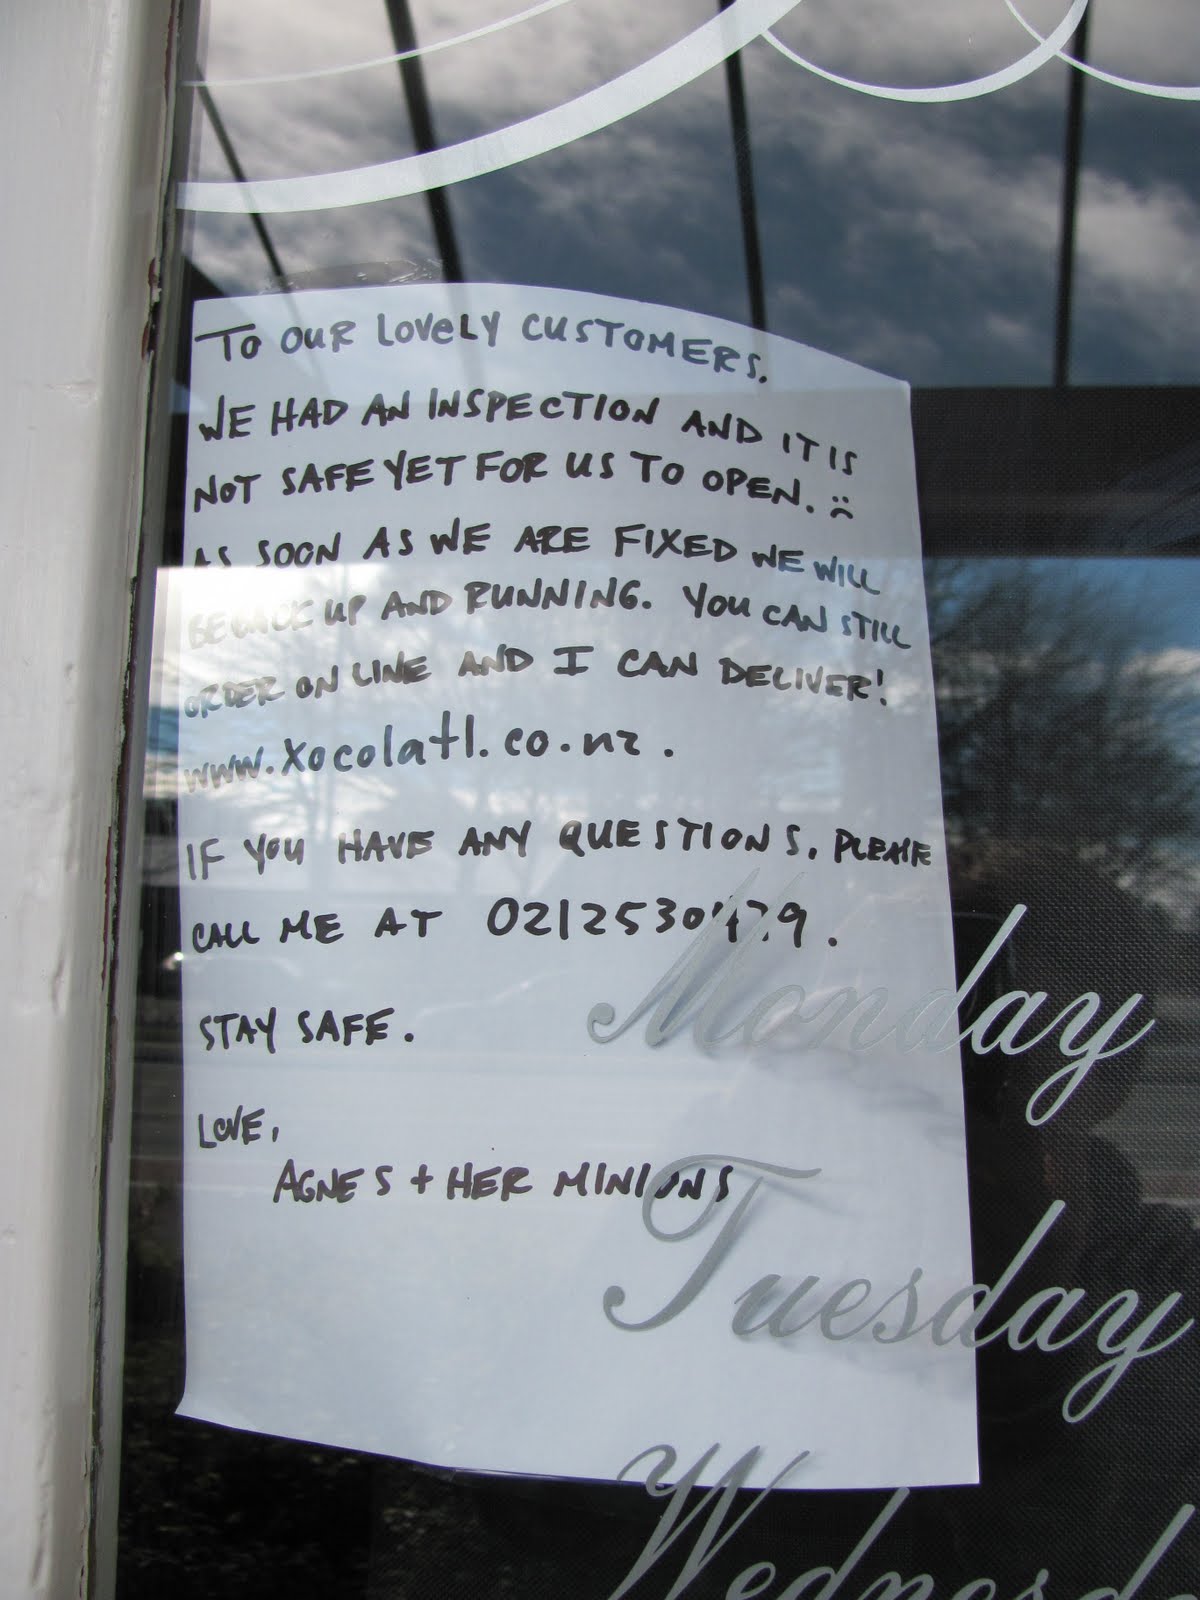 TO OUR LOVELY CUSTOMERS.
WE HAD AN INSPECTION AND IT IS
NOT SAFE YET FOR US TO OPEN. :(
AS SOON AS WE ARE FIXED WE WILL
BE BACK UP AND RUNNING. YOU CAN STILL
ORDER ON LINE AND I CAN DELIVER!
www.xocolatl.co.nz.
IF YOU HAVE ANY QUESTIONS, PLEASE
CALL ME AT
STAY SAFE.
LOVE,
AGNES + HER MINIONS
Monday
Tuesday